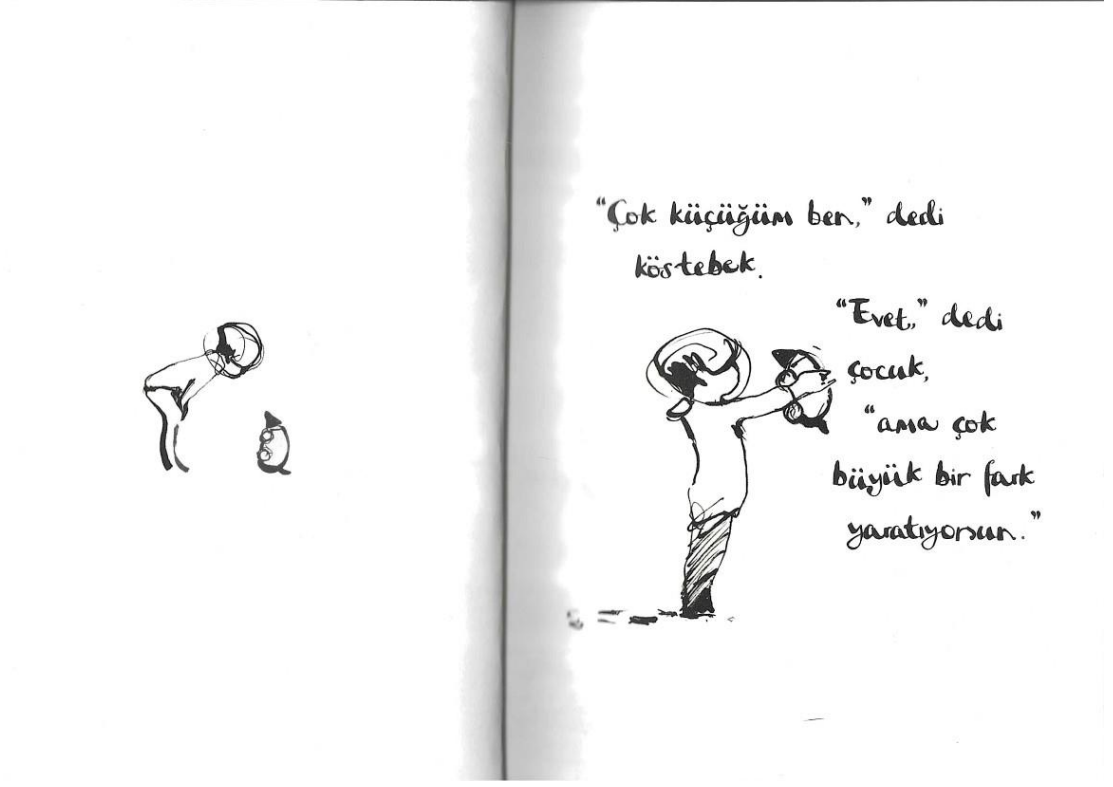 “Çok küçüğüm ben,” dedi
köstebek.
“Evet,” dedi
çocuk,
“ama çok
büyük bir fark
yaratıyorsun.”